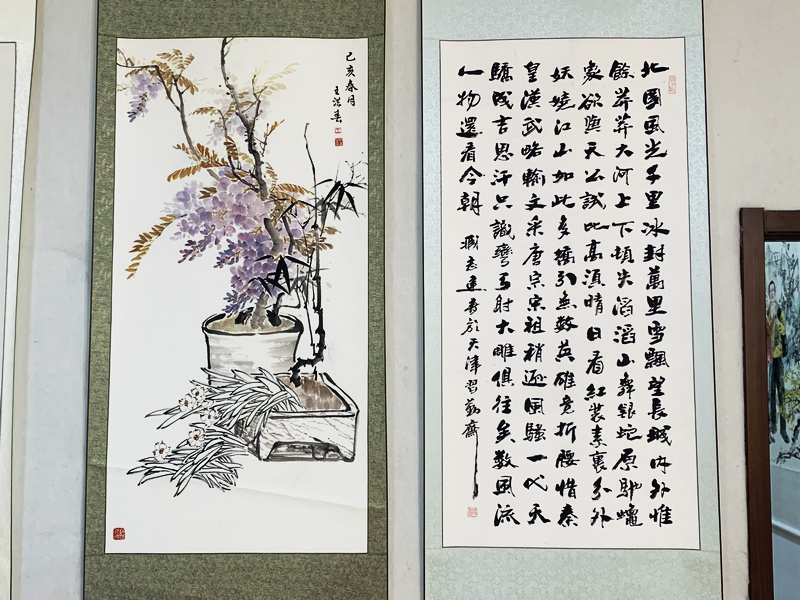 己亥春月
北國風光千里冰封萬里雪飄望長城內外惟
餘莽莽大河上下頓失滔滔山舞銀蛇原馳蠟
象欲與天公試比高須晴日看紅裝素裹分外
妖嬈江山如此多嬌引無數英雄竟折腰惜秦
皇漢武略輸文采唐宗宋祖稍遜風騷一代天
驕成吉思汗只識彎弓射大雕俱往矣數風流
人物還看今朝 書於天津習勤齋